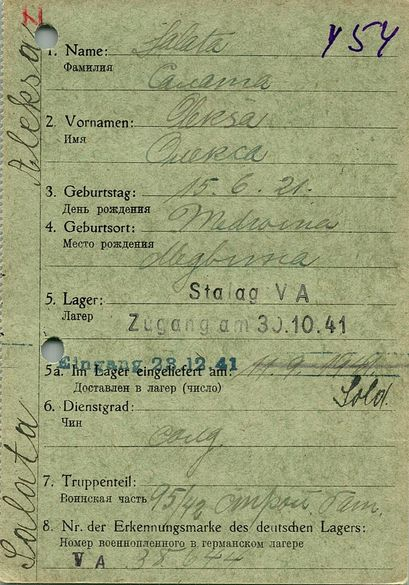 Aleksa
Salata
У54
1. Name: Salata
Фамилия
Салата
2. Vornamen: Oleksa
Имя
Олекса
3. Geburtstag: 15. 6. 21.
День рождения
4. Geburtsort: Medwina
Место рождения
Медвина
5. Lager: Stalag V A
Лагер
Zugang am 30.10.41
Eingang 23.12.41
5a. Im Lager eingeliefert am: 11.9.1941
Доставлен в лагер (число)
Sold.
6. Dienstgrad:
Чин
солд
7. Truppenteil:
Воинская часть 95/42 строй. бат.
8. Nr. der Erkennungsmarke des deutschen Lagers:
Номер военнопленного в германском лагере
V A